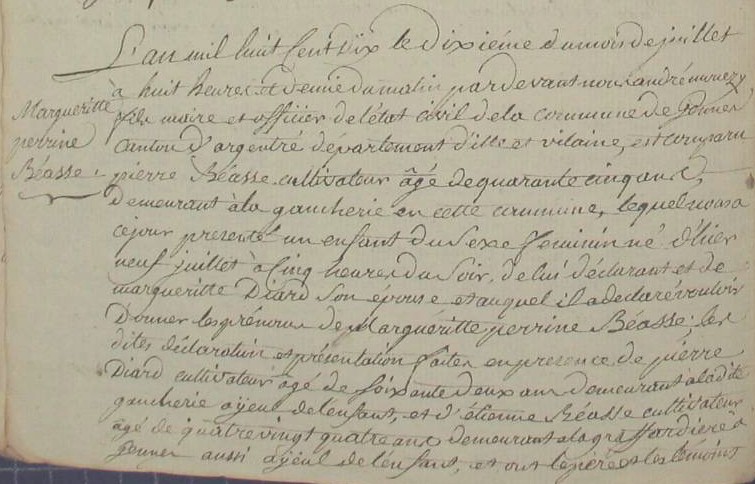 L'an mil huit Cent dix le dixiéme du mois de juillet
à huit heures et demie du matin par devant nous andré
fils maire et officier de l'état civil de la commune de Gennes
Margueritte
perrine
Béasse.
canton d'argentré département d'ille et vilaine, est comparu
pierre Béasse cultivateur âgé de quarante cinq ans,
Demeurant à la gaucherie en cette commune, lequel nous a
cejour presenté un enfant du Sexe feminin né d'hier
neuf juillet à Cinq heures du Soir, de lui déclarant et de
margueritte Diard Son épouse et auquel il a declaré vouloir
Donner les prénoms de Marguéritte perrine Béasse. les
dites déclaration et présentation faites en presence de pierre
Diard cultivateur âgé de Soixante deux ans demeurant à la dite
gaucherie ayeul de l'enfant, et d'étienne Béasse cultivateur
âgé de quatre vingt quatre ans demeurant a la graffardiere à
Gennes aussi ayeul de l'enfant, et ont le pére et les témoins